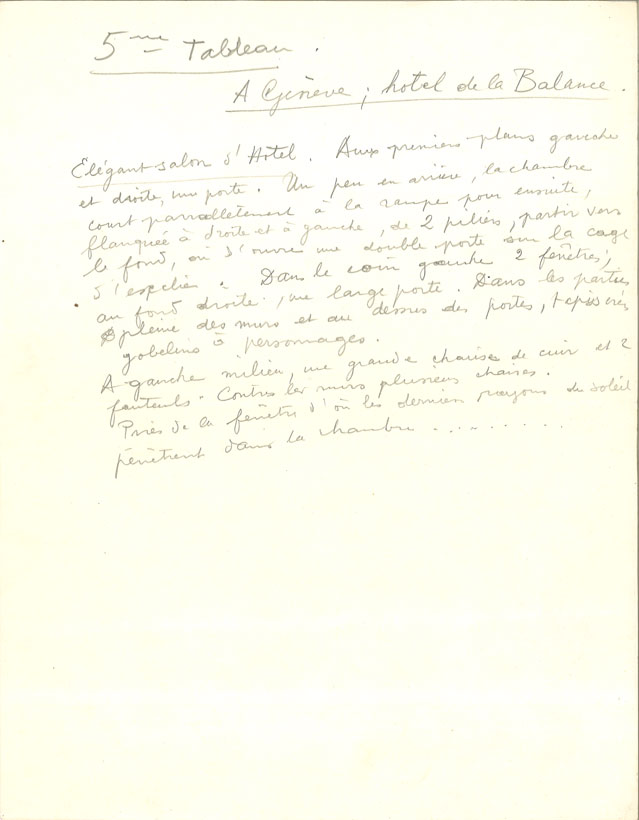 5me Tableau.
A Génève; hotel de la Balance.
Elégant salon d'Hôtel. Aux premiers plans gauche
et droite, une porte. Un peu en arrière, la chambre
court parrallèlement à la rampe pour ensuite,
flanquée à droite et à gauche, de 2 piliers, partir vers
le fond, où s'ouvre une double porte sur la cage
d'escalier. Dans le coin gauche 2 fenêtres,
au fond droite, une large porte. Dans les parties
pleine des murs et au dessus des portes, tapisseries
gobelins à personnages.
A gauche milieu, une grande chaise de cuir et 2
fauteuils. Contre les murs plusieurs chaises.
Près de la fenêtre d'où les derniers rayons du soleil
pénètrent dans la chambre .........